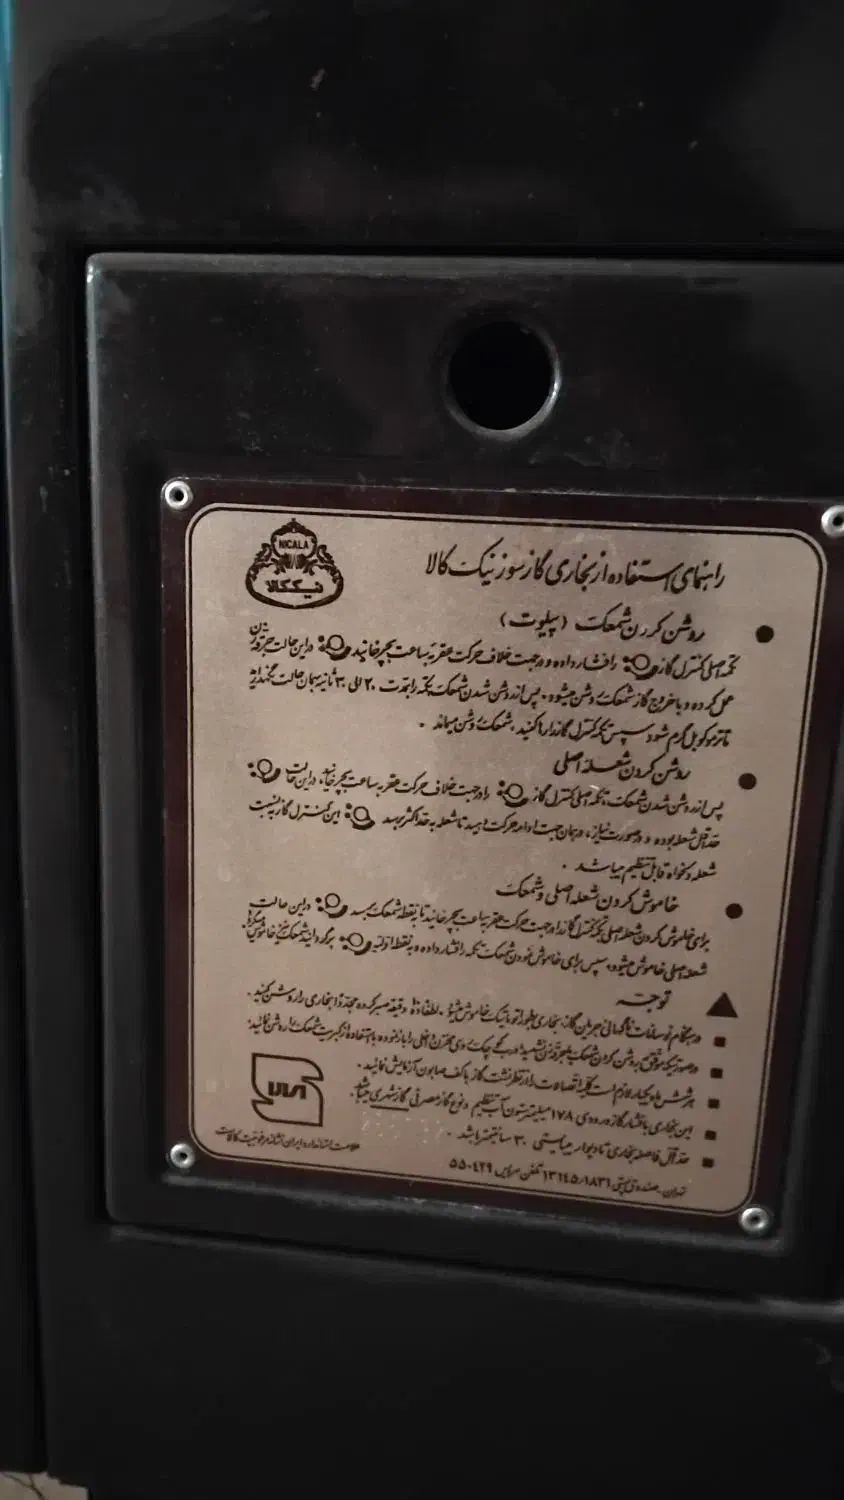 NICALA
نیک‌کالا
راهنمای استفاده از بخاری گازسوز نیک کالا
روشن کردن شمعک (پیلوت)
تکمه اصلی کنترل گاز را فشار داده و در جهت خلاف حرکت عقربه ساعت بچرخانید در این حالت جرقه زن
عمل کرده و با خروج گاز شمعک روشن میشود. پس از روشن شدن شمعک تکمه را بمدت ۲۰ الی ۳۰ ثانیه بهمان حالت نگهدارید
تا ترموکوپل گرم شود سپس تکمه کنترل گاز را رها کنید، شمعک روشن میماند.
روشن کردن شعله اصلی
پس از روشن شدن شمعک، تکمه اصلی کنترل گاز را در جهت خلاف حرکت عقربه ساعت بچرخانید، در این حالت
حداقل شعله بوده و در صورت نیاز، در همان جهت ادامه حرکت دهید تا شعله به حداکثر برسد این کنترل گاز به نسبت
شعله دلخواه قابل تنظیم میباشد.
خاموش کردن شعله اصلی و شمعک
برای خاموش کردن شعله اصلی تکمه کنترل گاز را در جهت حرکت عقربه ساعت بچرخانید تا به نقطه شمعک برسد در این حالت
شعله اصلی خاموش میشود، سپس برای خاموش نمودن شمعک تکمه را فشار داده و به نقطه اولیه برگردانید شمعک نیز خاموش میگردد.
توجه
در هنگام نوسانات ناگهانی جریان گاز، بخاری بطور اتوماتیک خاموش میشود. لطفاً ۵ دقیقه صبر کرده مجدداً بخاری را روشن کنید.
در صورتیکه موفق به روشن کردن شمعک بطریق فوق نشدید درب کوچک روی مخزن داخلی را باز نموده با استفاده از کبریت شمعک را روشن نمائید.
هر شش ماه یکبار لازم است کلیه اتصالات را از نظر نشت گاز با کف صابون آزمایش نمائید.
این بخاری با فشار گاز ورودی ۱۷۸ میلیمتر ستون آب تنظیم و نوع گاز مصرفی گاز شهری میباشد.
حداقل فاصله بخاری تا دیوار میبایستی ۳۰ سانتیمتر باشد.
تهران - صندوق پستی ۱۳۱۴۵/۱۸۳۱ تلفن سرویس ۵۵۰۴۲۹
علامت استاندارد ایران نشانه مرغوبیت کالاست